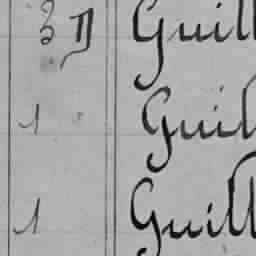 3 D Guill
1 Guil
1 Guill